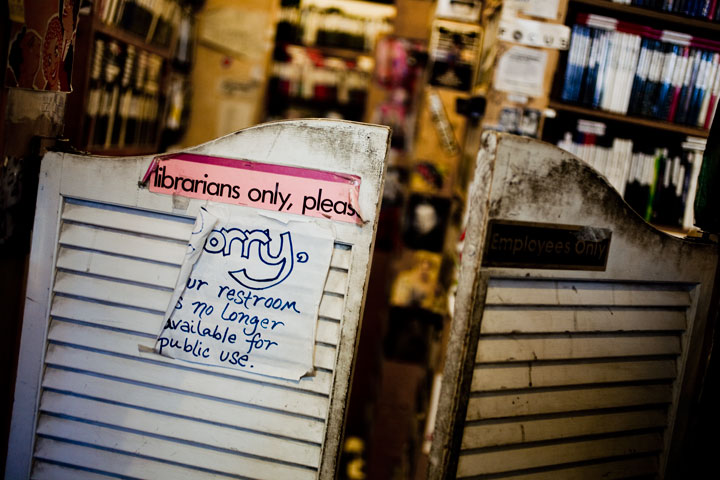 librarians only, pleas
orry,
ur restroom
s no longer
available for
public use.
Employees Only